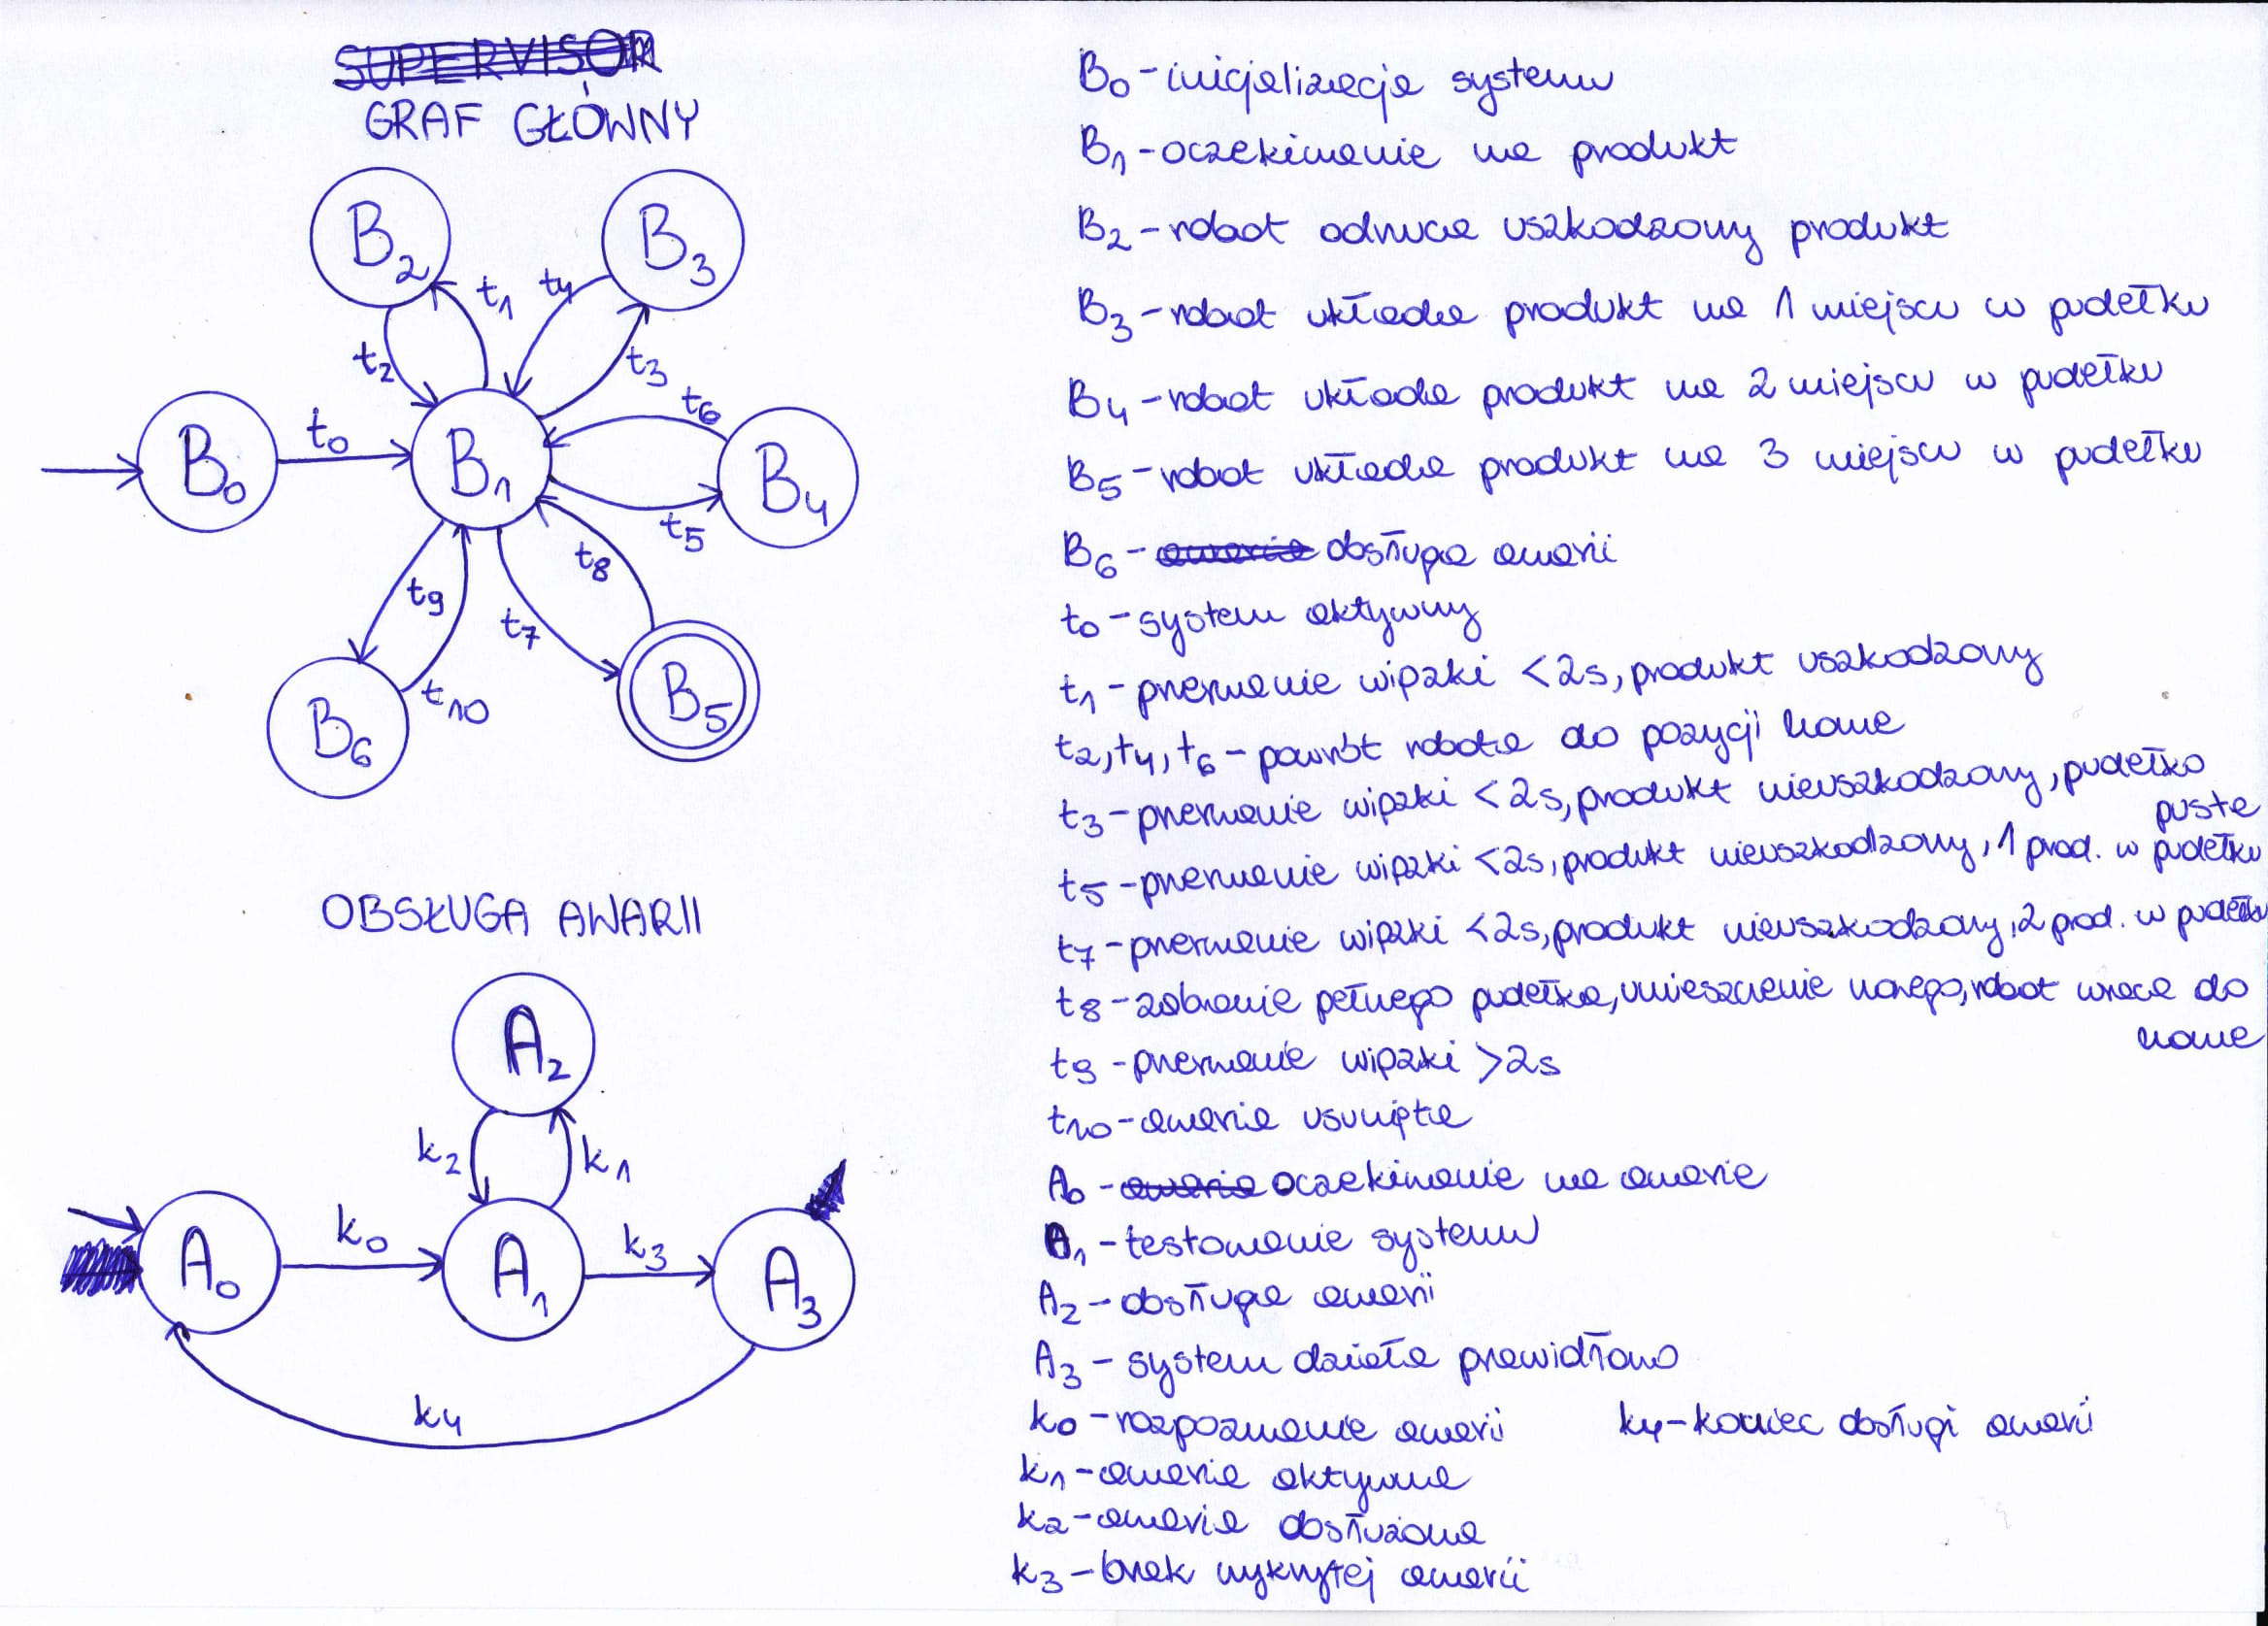 SUPERVISOR
GRAF GŁÓWNY
B2
B3
t1
t4
t2
t3
t6
B0
t0
B1
B4
t5
t8
t9
t7
t10
B5
B6
OBSŁUGA AWARII
A2
k2
k1
A0
k0
A1
k3
A3
k4
B0 - inicjalizacja systemu
B1 - oczekiwanie na produkt
B2 - robot odrzuca uszkodzony produkt
B3 - robot układa produkt na 1 miejscu w pudełku
B4 - robot układa produkt na 2 miejscu w pudełku
B5 - robot układa produkt na 3 miejscu w pudełku
B6 - awaria obsługa awarii
t0 - system aktywny
t1 - przerwanie wiązki <2s, produkt uszkodzony
t2, t4, t6 - powrót robota do pozycji home
t3 - przerwanie wiązki <2s, produkt nieuszkodzony, pudełko
puste
t5 - przerwanie wiązki <2s, produkt nieuszkodzony, 1 prod. w pudełku
t7 - przerwanie wiązki <2s, produkt nieuszkodzony, 2 prod. w pudełku
t8 - zabranie pełnego pudełka, umieszczenie nowego, robot wraca do
home
t9 - przerwanie wiązki >2s
t10 - awaria usunięta
A0 - awaria oczekiwanie na awarie
A1 - testowanie systemu
A2 - obsługa awarii
A3 - system działa prawidłowo
k0 - rozpoznanie awarii k4 - koniec obsługi awarii
k1 - awaria aktywna
k2 - awaria obsłużona
k3 - brak wykrytej awarii